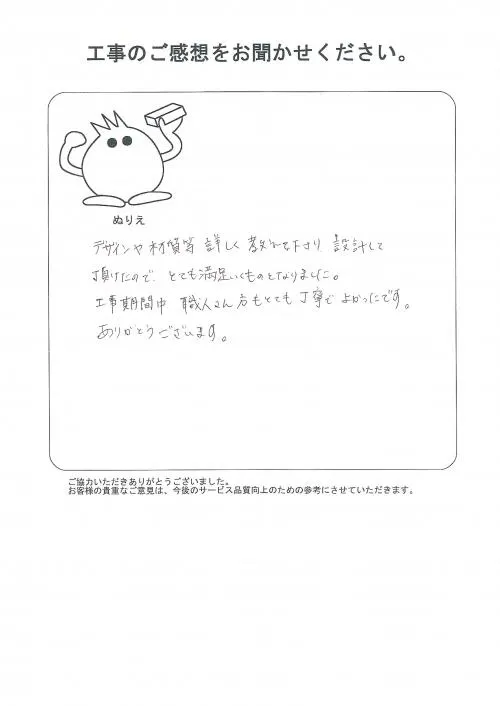 工事のご感想をお聞かせください。
ぬりえ
デザインや材質等 詳しく教えて下さり 設計して
頂けたので、とても満足いくものとなりました。
工事期間中 職人さん方もとても丁寧で よかったです。
ありがとうございます。
ご協力いただきありがとうございました。
お客様の貴重なご意見は、今後のサービス品質向上のための参考にさせていただきます。